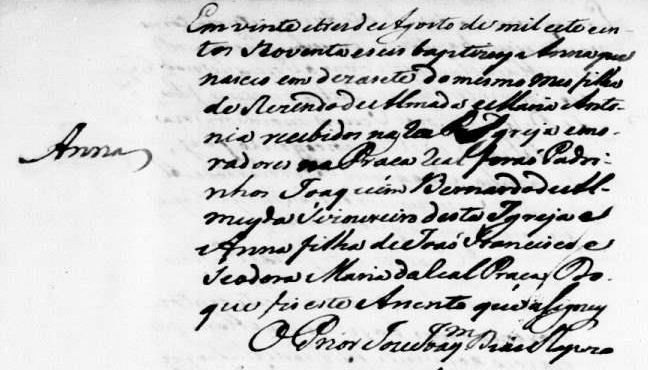 Em vinte e tres de Agosto de mil sete cen-
tos Noventa e seis baptizey a Anna que
nasceo em dezasete do mesmo mes filha
de Rezendo de Almada e Maria Anto-
nia recebidos na Igreja e mo-
Anna
radores na Praca Leal foraõ Padri-
nhos Joaquim Bernardo de Al-
meyda desta Igreja e
Anna filha de Joaõ Francisco e
Teodora Maria da Leal Praca, Do
que fis este Acento que asigney
O Prior